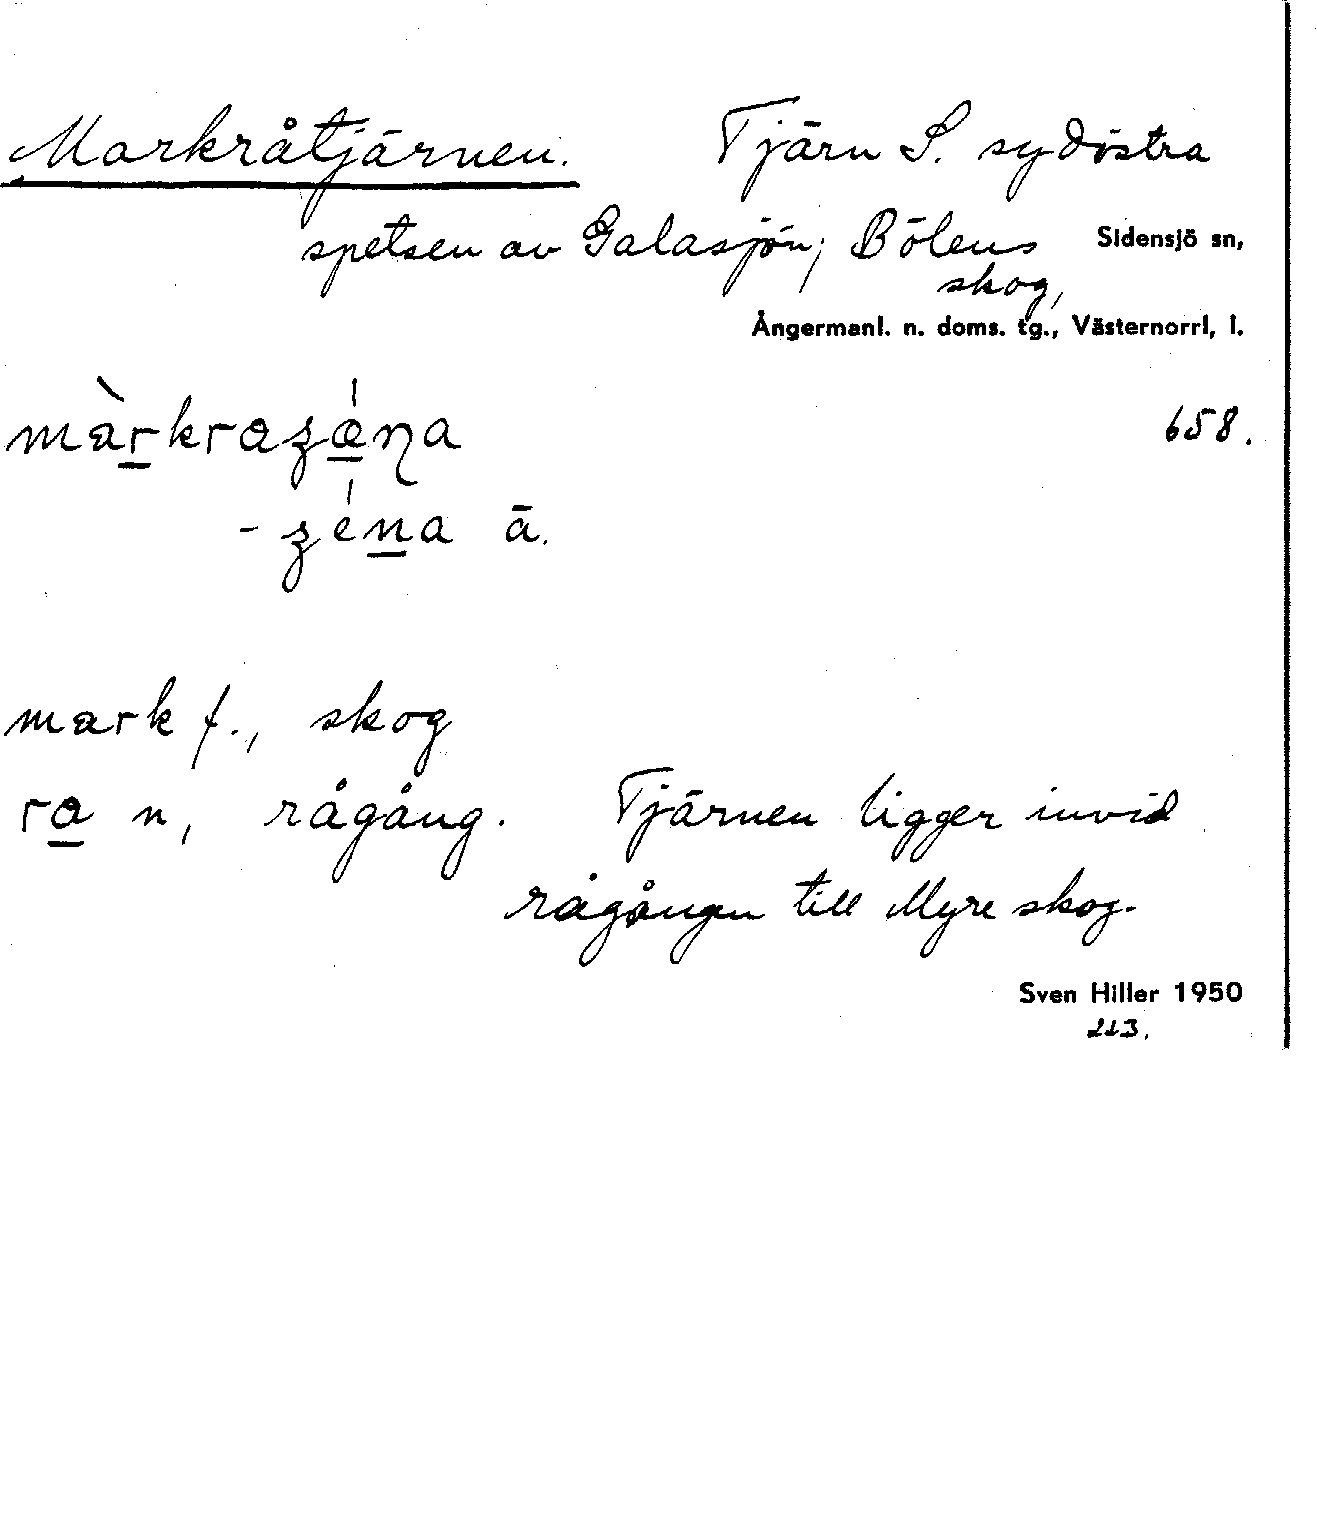 Markråtjärnen. Tjärn S. sydöstra
spetsen av Galasjön; Bölens
Sidensjö sn,
skog,
Ångermanl. n. doms. tg., Västernorrl, l.
màrkrazǽna
658.
- zéna ā.
mark f., skog
ra n, rågång. Tjärnen ligger invid
rågången till Myre skog.
Sven Hiller 1950